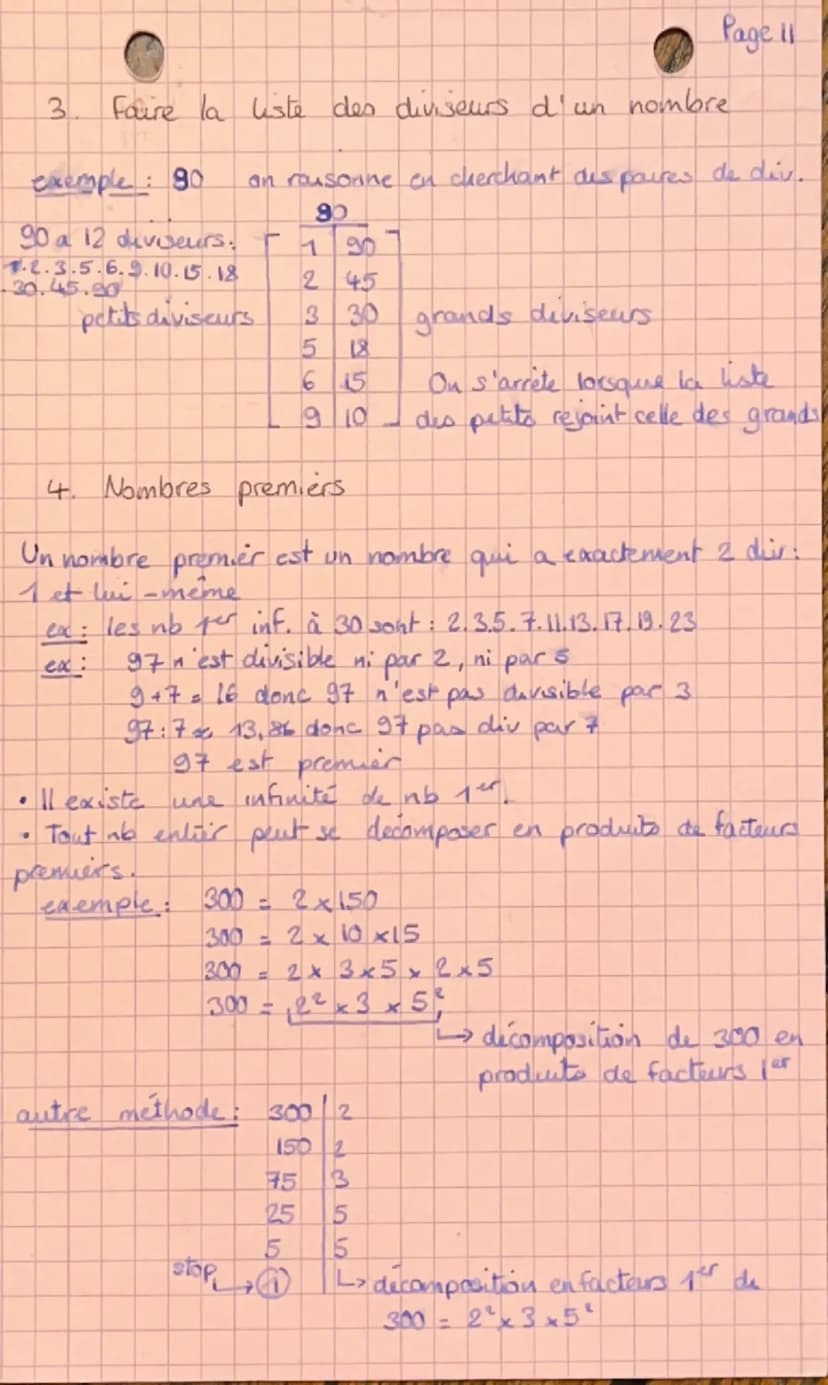 Page 11
3. Faire la liste des diviseurs d'un nombre
exemple : 90 on raisonne en cherchant des paires de div.
90
90 a 12 diviseurs:
1.2.3.5.6.9.10.15.18
.30.45.90
1 90
2 45
petits diviseurs 3 30 grands diviseurs
5 18
6 15 On s'arrête lorsque la liste
9 10 des petits rejoint celle des grands
4. Nombres premiers
Un nombre premier est un nombre qui a exactement 2 div:
1 et lui-même
ex: les nb 1er inf. à 30 sont : 2.3.5.7.11.13.17.19.23
ex: 97 n'est divisible ni par 2, ni par 5
9+7=16 donc 97 n'est pas divisible par 3
97:7≈ 13,86 donc 97 pas div par 7
97 est premier
• Il existe une infinité de nb 1er.
• Tout nb entier peut se décomposer en produits de facteurs
premiers.
exemple: 300 = 2×150
300 = 2 × 10 ×15
300 = 2 × 3×5 × 2×5
300 = 2² × 3 × 5²
↳ décomposition de 300 en
produits de facteurs 1er
autre méthode: 300 | 2
150 | 2
75 | 3
25 | 5
5 | 5
stop → 1 ↳ décomposition en facteurs 1er de
300 = 2² × 3 × 5²